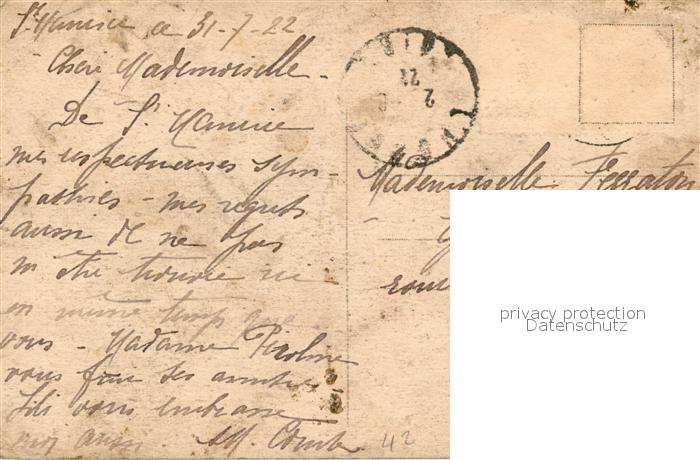 St Maurice ce 31-7-22
Chère Mademoiselle -
De St Maurice
mes respectueuses sym-
pathies - mes regrets
aussi de ne pas
m'être trouvée ici
en même temps que
vous - Madame
vous fait ses amitiés
Lili vous embrasse
moi aussi. M.
42
Mademoiselle
privacy protection
Datenschutz